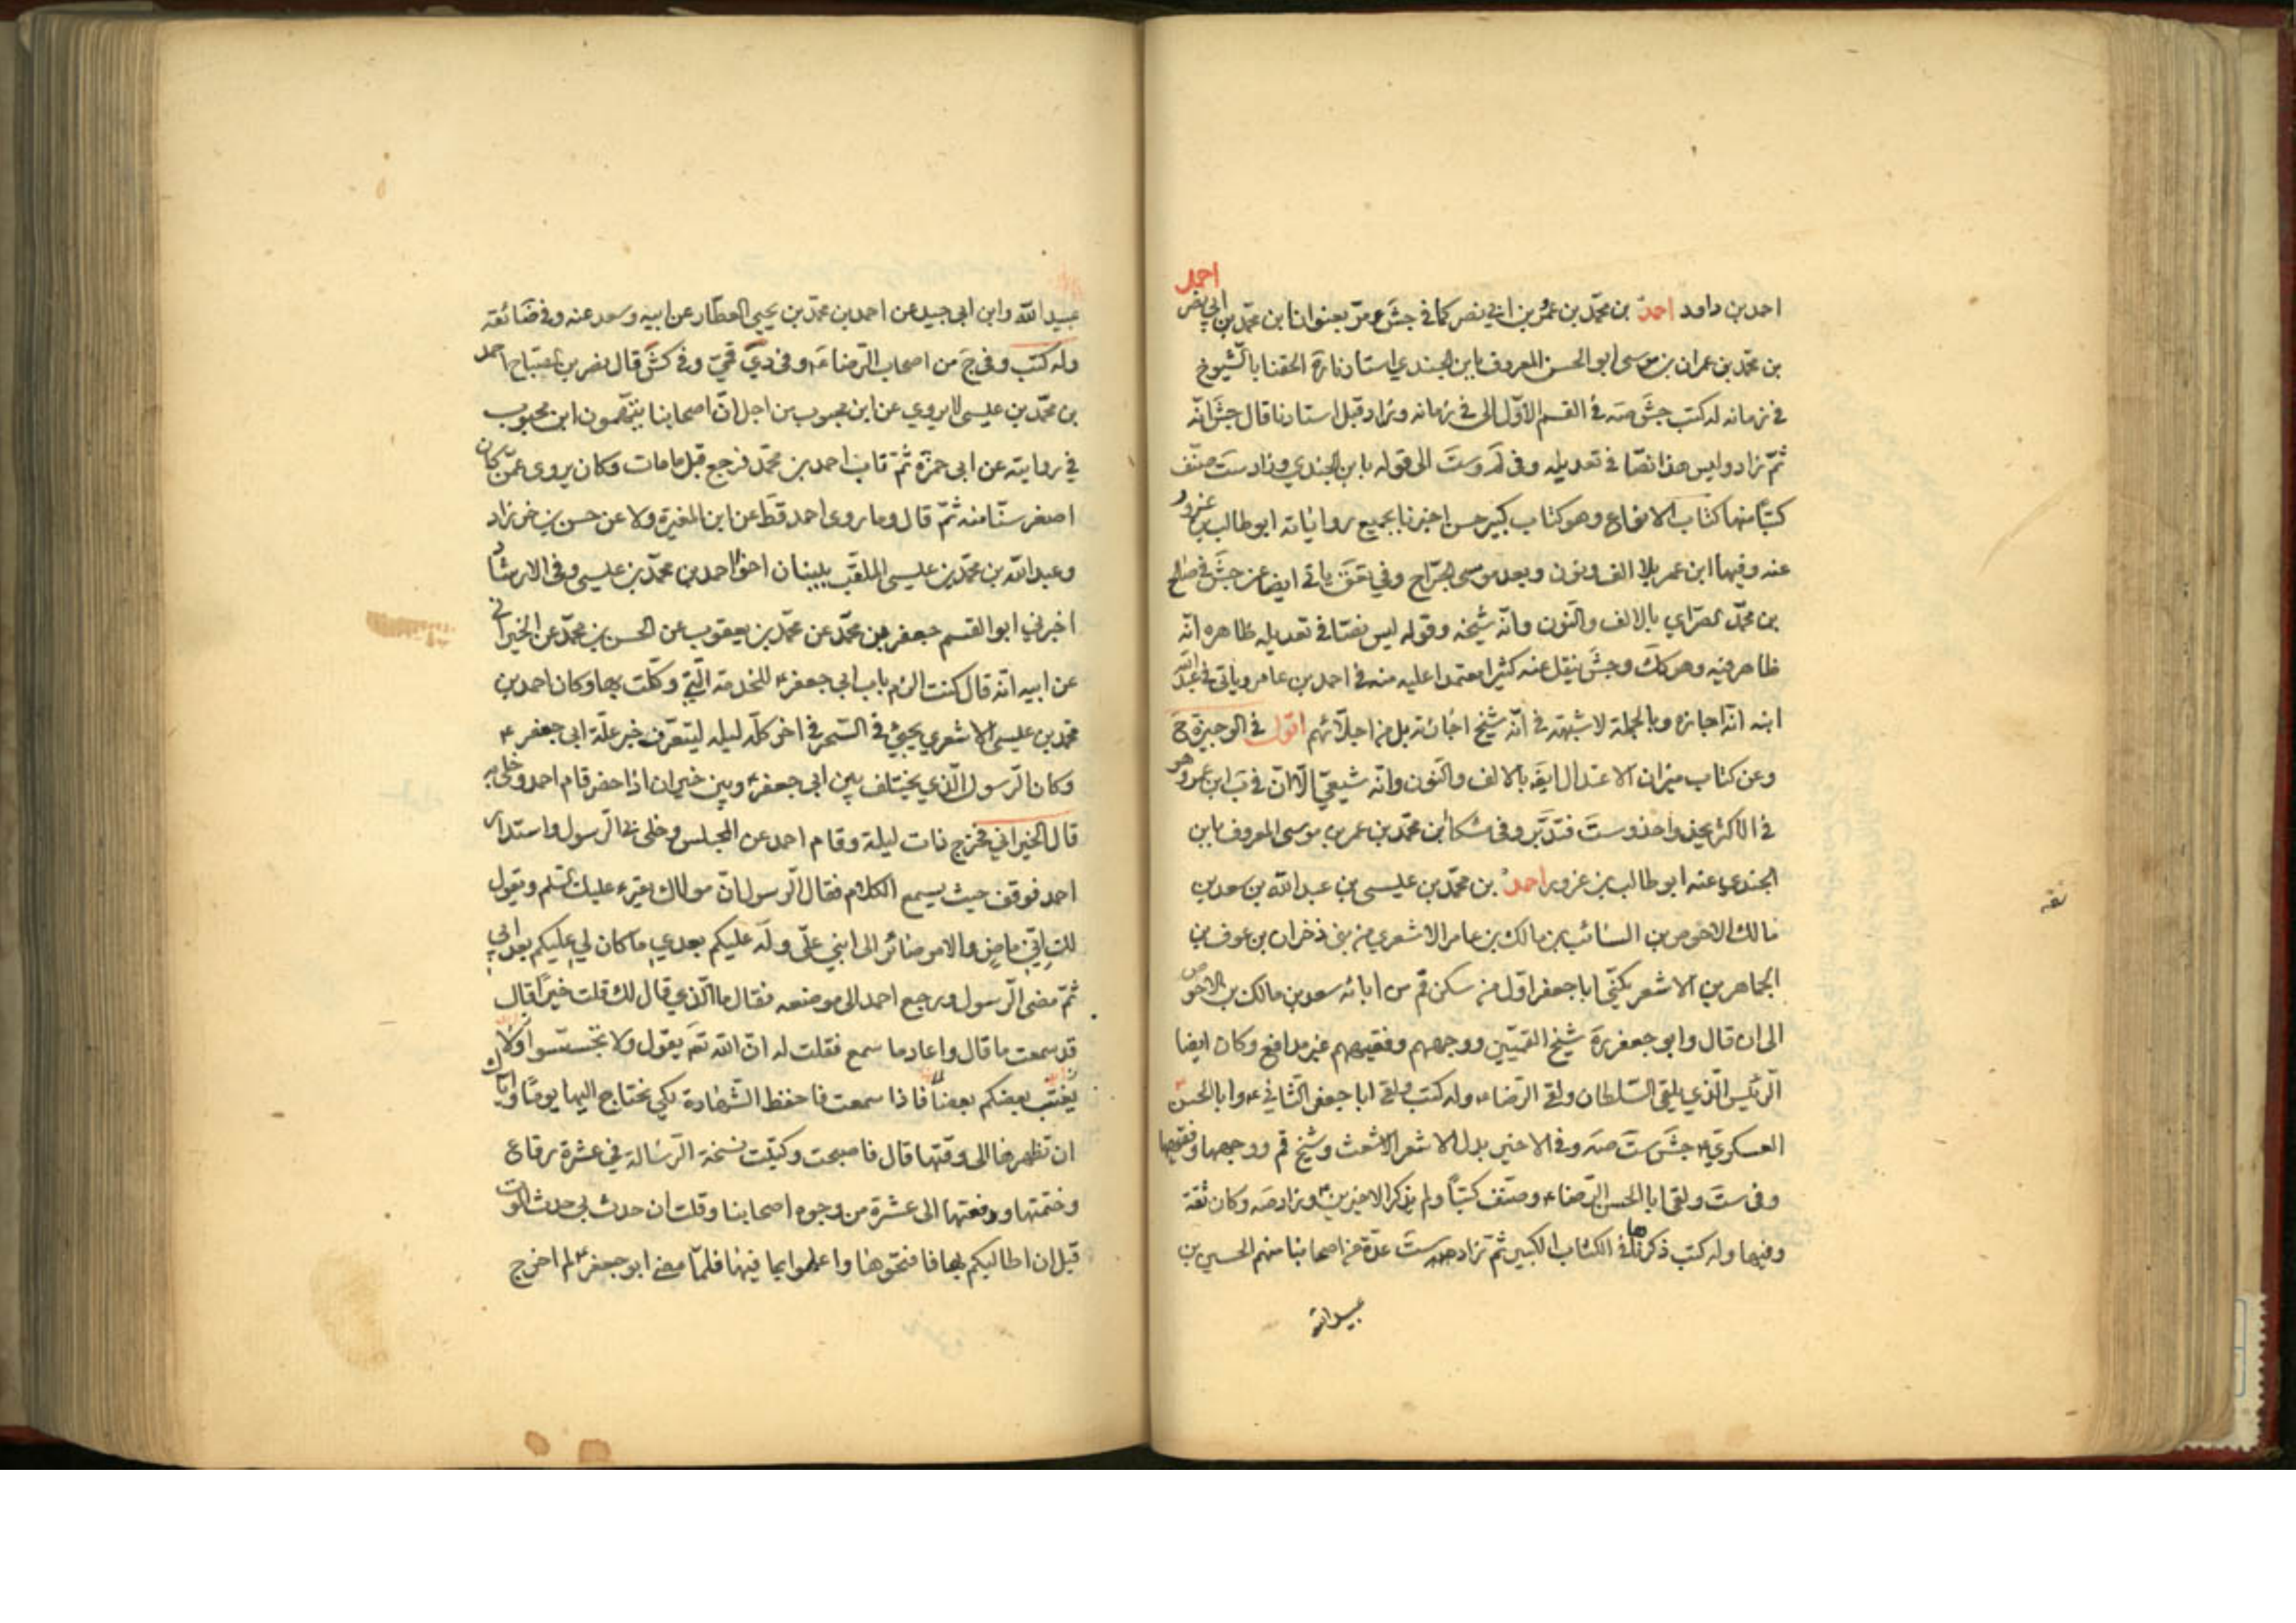 احمد
احمد بن داود احمد بن محمّد بن عمر بن ابي نصر كما في جش ومرّ بعنوان ابن محمّد بن ابي نصر
بن محمّد بن عمران بن موسى ابو الحسن المعروف بابن الجندي استادنا ره الحقنا بالشّيوخ
في زمانه له كتب جش صه في القسم الاوّل الى في زمانه وزاد قبل استادنا قال جش انّه
ثمّ زاد وليس هذا نصّا في تعديله وفي لم وست الى قوله بابن الجندي وزاد ست صنّف
كتبا منها كتاب الانواع وهو كتاب كبير حسن اخبرنا بجميع رواياته ابو طالب بن غرور
عنه وفيها ابن عمر بلا الف ونون وبعد موسى الجرّاح وفي تعق ياتي ايضا عن جش في صالح
بن محمّد الصراي بالالف والنّون وانّه شيخه وقوله ليس نصّا في تعديله ظاهره انّه
ظاهر فيه وهو كك وجش ينقل عنه كثيرا معتمدا عليه منه في احمد بن عامر وياتي في عبد الله
ابنه انّه اجازه وبالجملة لا شبهة في انّه شيخ اجازة بل من اجلّائهم اقول في الوجيزة ح
وعن كتاب ميزان الاعتدال ايضا بالالف والنّون وانّه شيعيّ الّا انّ في ب ابن عمر وهو
في الاكثر يحذو حذو ست فتدبّر وفي مشكا ابن محمّد بن عمر بن موسى المعروف بابن
الجندي عنه ابو طالب بن غرور احمد بن محمّد بن عليسى بن عبد الله بن سعد بن
مالك الاخوص بن السائب بن مالك بن عامر الاشعري من بني ذخران بن عوف بن
الجماهر بن الاشعر يكنّى ابا جعفر اوّل من سكن قم من ابائه سعد بن مالك بن الاخوص
الى ان قال وابو جعفر ره شيخ القميّين ووجههم وفقيههم غير مدافع وكان ايضا
الرّئيس الّذي يلقى السّلطان ولقى الرّضا ء وله كتب ولقى ابا جعفر الثّاني ء وابا الحسن
العسكري ء جش ست صه وفي الاخير بدل الاشعر الاشعث وشيخ قم ووجهها وفقيهها
وفي ست ولقى ابا الحسن الرّضا ء وصنّف كتبا ولم يذكر الاخيرين وزاد صه وكان ثقة
وفيها وله كتب ذكرناها في الكتاب الكبير ثمّ زاد ست عدّة من اصحابنا منهم الحسين بن
عبيد الله
ثقه
عبيد الله وابن ابي جيد عن احمد بن محمّد بن يحيى العطّار عن ابيه وسعد عنه وفي ضا ثقه
وله كتب وفي ج من اصحاب الرّضا ء وفي دي قمّي وفي كش قال نصر بن الصبّاح احمد
بن محمّد بن عليسى لا يروي عن ابن محبوب من اجل انّ اصحابنا يتّهمون ابن محبوب
في روايته عن ابي حمزة ثمّ تاب احمد بن محمّد فرجع قبل ما مات وكان يروى عمّن كان
اصغر سنّا منه ثمّ قال وما روى احمد قط عن ابن المغيرة ولا عن حسن بن خرزاد
وعبد الله بن محمّد بن عليسى الملقّب ببنان اخو احمد بن محمّد بن عليسى وفي الارشاد
اخبرني ابو القسم جعفر بن محمّد عن محمّد بن يعقوب عن الحسن بن محمّد عن الخيراني
عن ابيه انّه قال كنت الزم باب ابي جعفر ء للخدمة الّتي وكّلت بها وكان احمد بن
محمّد بن عليسى الاشعري يجيئ في السّحر في اخر كلّ ليله ليتعرّف خبر علّة ابي جعفر ء
وكان الرّسول الّذي يختلف بين ابي جعفر ء وبين خيران اذا حضر قام احمد وخلى به
قال الخيراني فخرج ذات ليلة وقام احمد عن المجلس وخلى بي الرّسول واستدار
احمد فوقف حيث يسمع الكلام فقال الرّسول انّ مولاك يقرء عليك السّلم ويقول
لك انّي ماض والامر صائر الى ابني عليّ وله عليكم بعدي ما كان لي عليكم بعد ابي
ثمّ مضى الرّسول ورجع احمد الى موضعه فقال ما الّذي قال لك قلت خيرا قال
قد سمعت ما قال واعاد ما سمع فقلت له انّ الله تعه يقول ولا تجسّسوا ولا
يغتب بعضكم بعضا فاذا سمعت فاحفظ الشّهادة لكي تحتاج اليها يوما وايّاك
ان تظهرها الى وقتها قال فاصبحت وكتبت نسخة الرّسالة في عشرة رقاع
وختمتها ودفعتها الى عشرة من وجوه اصحابنا وقلت ان حدث بي حدث الموت
قبل ان اطالبكم بها فافتحوها واعلموا بما فيها فلمّا مضى ابو جعفر ء لم اخرج